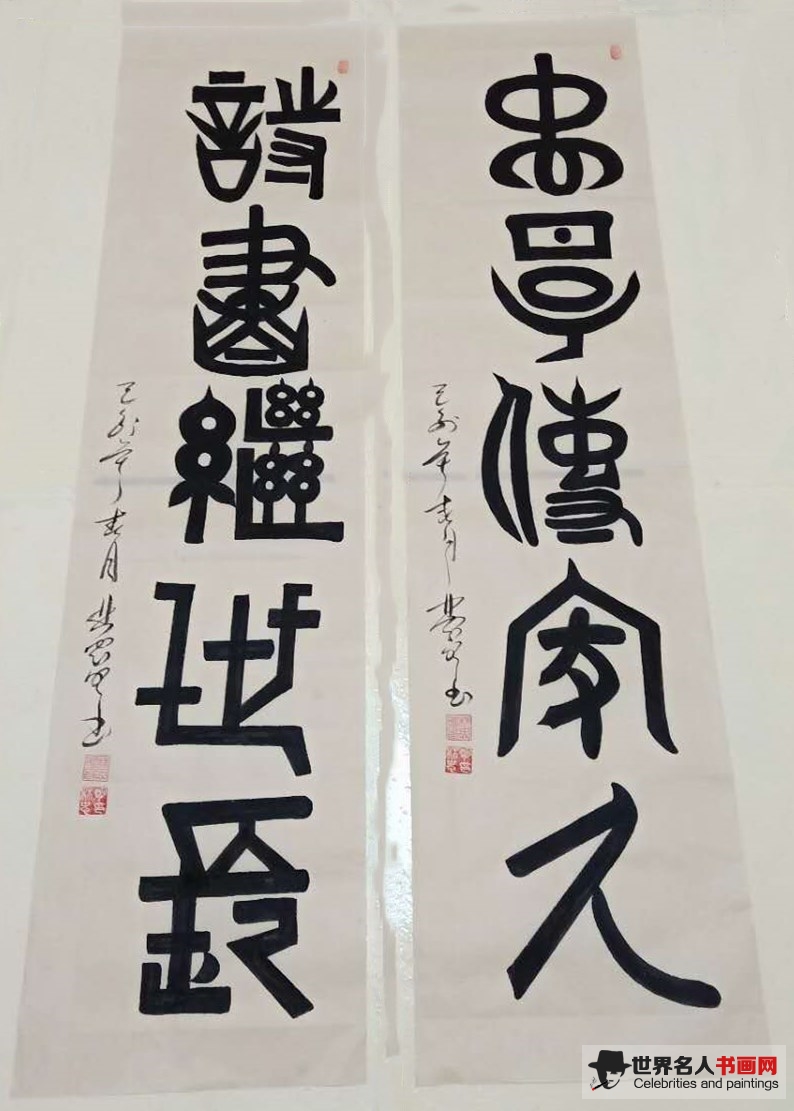 忠厚傳家久
己亥年春月
書
詩書繼世長
己亥年春月
書
世界名人书画网
Celebrities and paintings